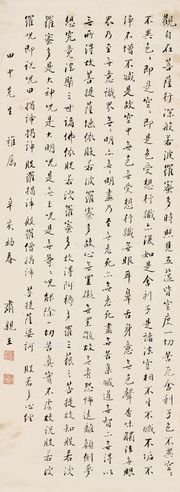 觀自在菩薩行深般若波羅蜜多時照見五蘊皆空度一切苦厄舍利子色不異空空
不異色色即是空空即是色受想行識亦復如是舍利子是諸法空相不生不滅不垢不
淨不增不減是故空中無色無受想行識無眼耳鼻舌身意無色聲香味觸法無眼
界乃至無意識界無無明亦無無明盡乃至無老死亦無老死盡無苦集滅道無智亦無得以
無所得故菩提薩埵依般若波羅蜜多故心無罣礙無罣礙故無有恐怖遠離顛倒夢
想究竟涅槃三世諸佛依般若波羅蜜多故得阿耨多羅三藐三菩提故知般若波
羅蜜多是大神呪是大明呪是無上呪是無等等呪能除一切苦真實不虛故說般若波
羅呪即說呪曰揭諦揭諦般羅揭諦般羅僧揭諦菩提薩婆訶般若多心經
田中先生雅屬辛亥初春肅親王